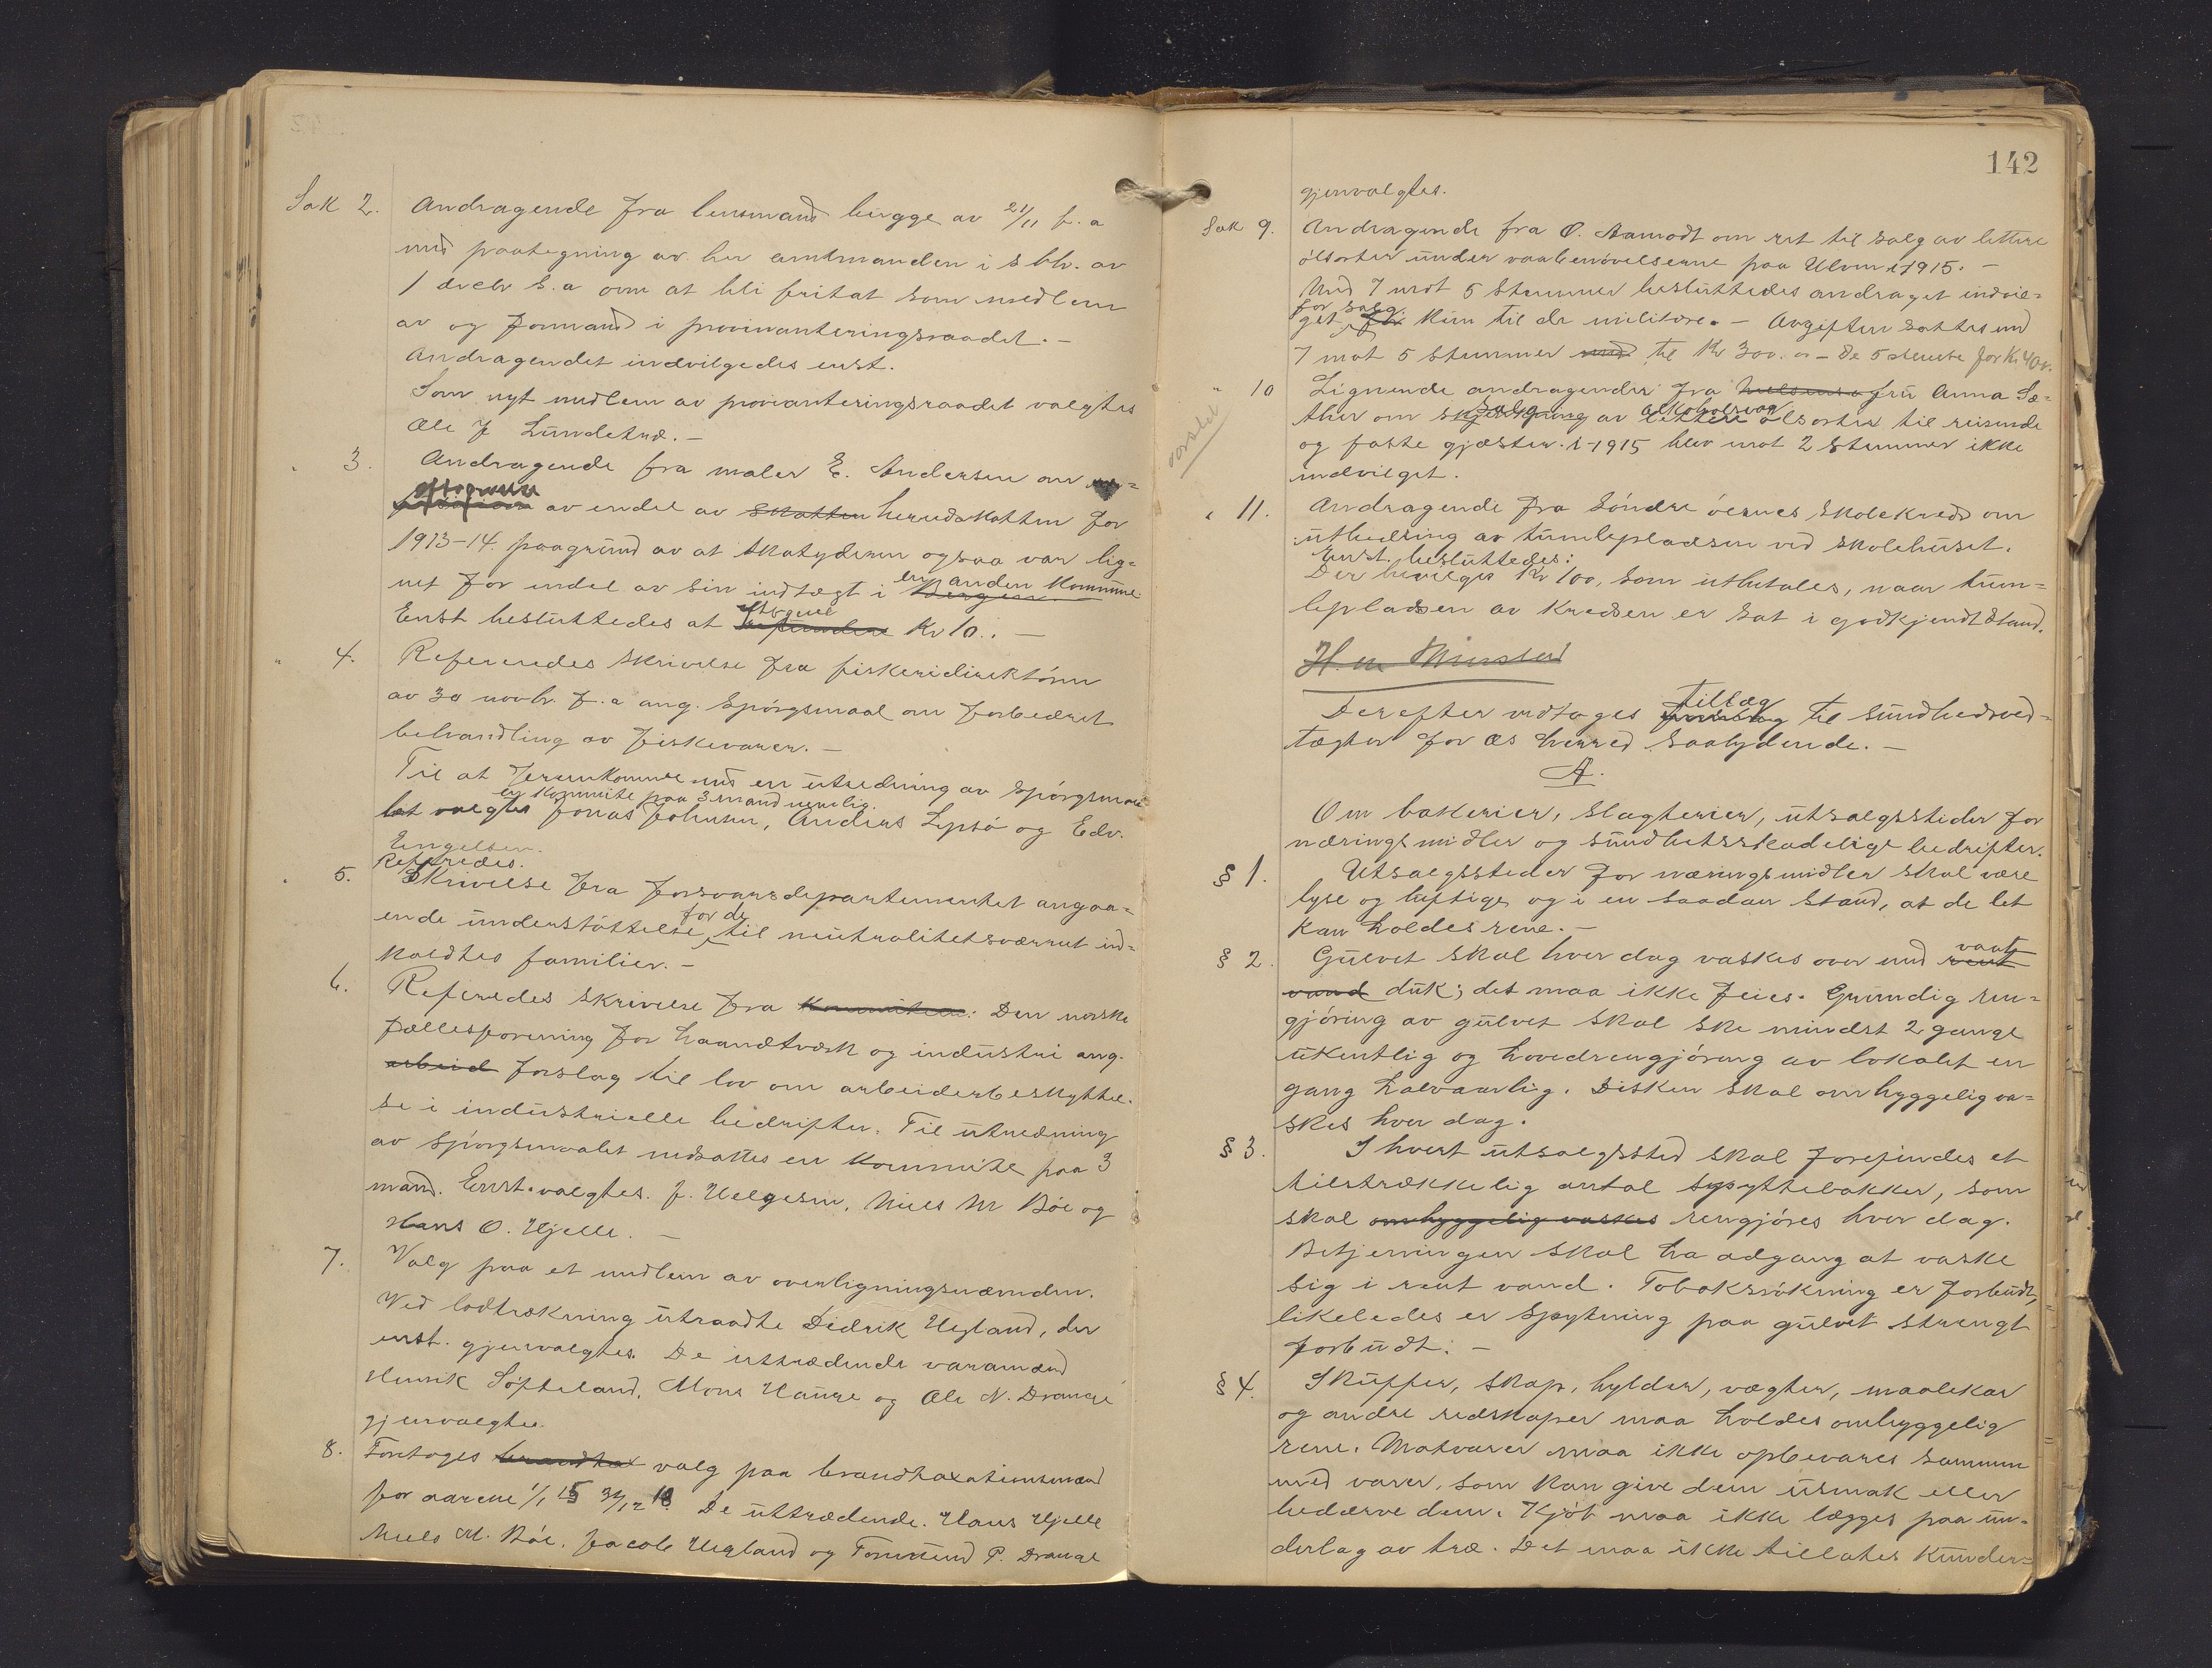 Sak 2. Andragende fra lensmand Lingge av 21/11 f. a
med paategning av her amtmanden i s bh. av
1 decbr s. a om at bli fritat som medlem
av og formand i provianteringsraadet. –
Andragendet indvilgedes enst.
Som nyt medlem av provianteringsraadet valgtes
Ole J Lundetræ. –
" 3. Andragende fra maler E. Andersen om
eftergivelse av endel av skatten herredsskatten for
1913-14. paagrund av at skatyderen ogsaa var lig=
net for endel av sin indtægt i Bergen en anden kommune
Enst besluttedes at refundere eftergive Kr 10.. —
" 4. Refereredes skrivelse fra fiskeridirektøren
av 30 novbr. f. a ang. spørgsmaal om forbedret
behandling av fiskevarer. –
Til at fremkomme med en utredning av spørgsmaa=
let valgtes en komite paa 3 mand nemlig. Jonas Johnsen, Anders Lepsø og Edv.
Engelsen.
Refereredes.
" 5. Skrivelse fra forsvarsdepartementet angaa=
ende understøttelse for de til neutralitetsværnet ind=
kaldtes familier. –
6. Refereredes skrivelse fra komiteen: Den norske
fællesforening for haandtverk og industri ang.
arbeid forslag til lov om arbeiderbeskyttel=
se i industrielle bedrifter. Til utredning
av spørgsmaalet nedsattes en komite paa 3
mand. Enst. valgtes. J. Helgesen, Niels M Bøe og
Hans O. Hjelle. –
7. Valg paa et medlem av overligningsnævnden.
Ved lodtrækning utraadte Didrik Hegland, der
enst. gjenvalgtes. De uttrædende varamænd
Henrik Søfteland, Mons Hauge og Ole N. Drange
gjenvalgtes.
8. Foretoges brandtax valg paa brandtaxationsmænd
for aarene 1/1 15 31/12 18. De uttrædende. Hans Hjelle
Niels M. Bøe, Jacob Hegland og Tormund P. Drange
142
gjenvalgtes.
Sak 9. Andragende fra O. Aamodt om ret til salg av lettere
ølsorter under vaabenøvelserne paa Ulven i 1915. –
Med 7 mot 5 stemmer besluttedes andraget indvil=
get, for salg kun til de militære. – Avgiften sattes med
7 mot 5 stemmer med til Kr 300. – De 5 stemte for Kr 400.
" 10 Lignende andragender fra fru Anna Sæ=
ther om skjenkning salg av lettere alkoholsvage ølsorter til reisende
og faste gjæster. i 1915 blev mot 2 stemmer ikke
indvilget.
" 11. Andragende fra Søndre øernes skolekreds om
utbedring av tumlepladsen ved skolehuset.
Enst. besluttedes:
Der bevilges Kr 100, som utbetales, naar tum=
lepladsen av kredsen er sat i godkjendt stand.
Derefter vedtoges forslag tillæg til sundhedsved=
tægter for Os herred saalydende. –
A.
Om bakerier, slagterier, utsalgssteder for
næringsmidler og sundhetsskadelige bedrifter.
§ 1. Utsalgssteder for næringsmidler skal være
lyse og luftige og i en saadan stand, at de let
kan holdes rene. –
§ 2. Gulvet skal hver dag vaskes over med rent vaat
vand duk; det maa ikke feies. Grundig ren=
gjøring av gulvet skal ske mindst 2 gange
ukentlig og hovedrengjøring av lokalet en
gang halvaarlig. Disken skal omhyggelig va=
skes hver dag.
§ 3. I hvert utsalgssted skal forefindes et
tilstrækkelig antal spyttebakker, som
skal omhyggelig vaskes rengjøres hver dag.
Betjeningen skal ha adgang at vaske
sig i rent vand. Tobaksrøkning er forbudt,
likeledes er spytning paa gulvet strengt
forbudt. –
§ 4. Skuffer, skap, hylder, vægter, maalekar
og andre redskaper maa holdes omhyggelig
rene. Matvarer maa ikke opbevares sammen
med varer, som kan give dem usmak eller
bedærve dem. Kjøt maa ikke lægges paa un=
derlag av træ. Det maa ikke tillates kunder=